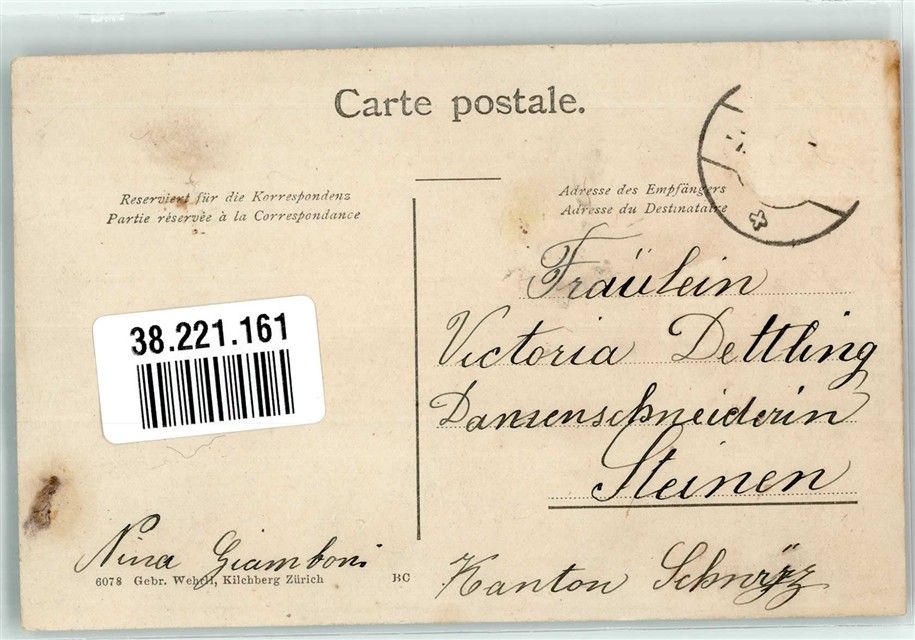 Carte postale.
Reserviert für die Korrespondenz
Partie réservée à la Correspondance
Adresse des Empfängers
Adresse du Destinataire
38.221.161
Fräulein
Victoria Dettling
Damenschneiderin
Steinen
Kanton Schwyz
Nina Giamboni
6078 Gebr. Wehrli, Kilchberg Zürich
BC